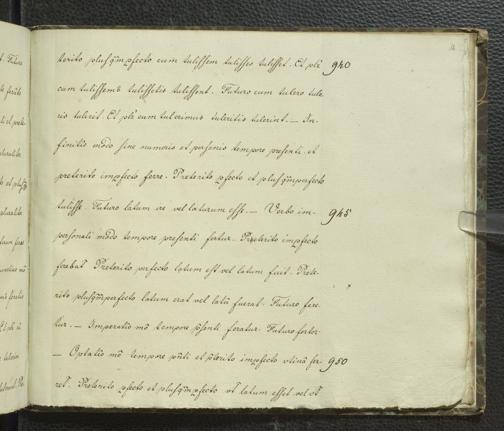 terito plusq̃mp̱fecto cum tulissem tulisses tulisset. Et plr̃ 940
cum tulissemus tulissetis tulissent. Futuro cum tulero tule-
ris tulerit. Et plr̃ cum tulerimus tuleritis tulerint. — In-
finitis mõdo sine numeris et personis tempore presenti et
preterito imp̱fecto ferre. Preterito p̱fecto et plusq̃mperfecto
tulisse. Futuro latum ire vel laturum esse. — Verbo im- 945
personali mõdo tempore presenti fertur. Preterito imp̱fecto
ferebat̃ Preterito perfecto latum est vel latum fuit. Prete-
rito plusq̃mperfecto latum erat vel latũ fuerat. Futuro fere-
tur. — Imperatiõ mõ tempore p̃senti feratur. Futuro fertor.
— Optatiõ mõ tempore p̃nti et p̃terito imp̱fecto utinã fer- 950
ret̃. Preterito p̱fecto et plusq̃mp̱fecto ut̃ latum esset vel